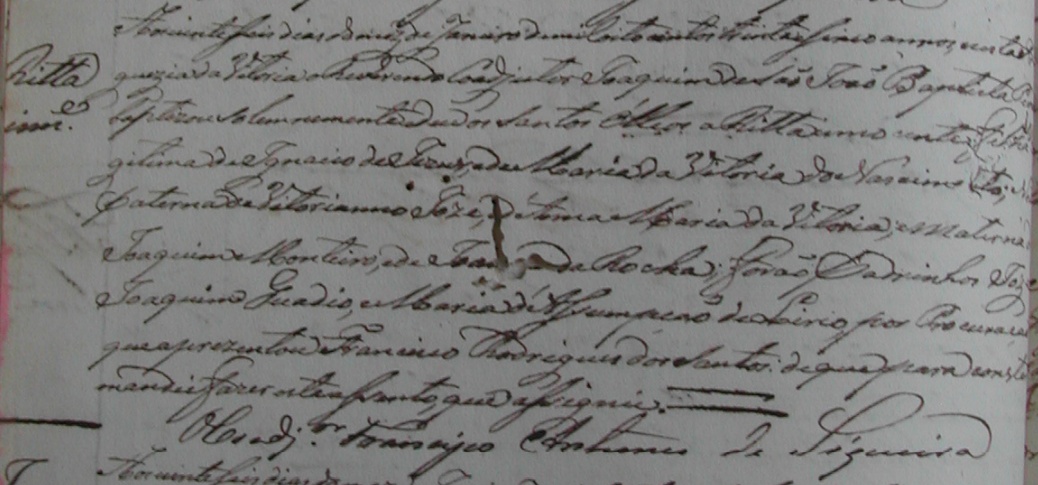 Aos vinte seis dias do mez de Janeiro de mil oito centos trinta e sinco annos nesta
Ritta
guezia da Vitoria o Reverendo Coadjutor Joaquim de São João Baptista
inn.e
baptizou solemnemente e deu os Santos Óleos a Ritta innocente, filha
gitima de Ignacio de e de Maria da Vitoria do Nascimento,
paterna de Vitorianno Joze, e Maria da Vitoria; e Materna
Joaquim Monteiro, e de da Rocha; forão Padrinhos Joze
Joaquim e Maria d'Assumpcão de por Procuração
que aprezentou Francisco Rodrigues dos Santos. de que para constar
mandei fazer este asento, que assignei.
O Coadj.or Francisco Antunes de Siqueira
Aos vinte seis dias do